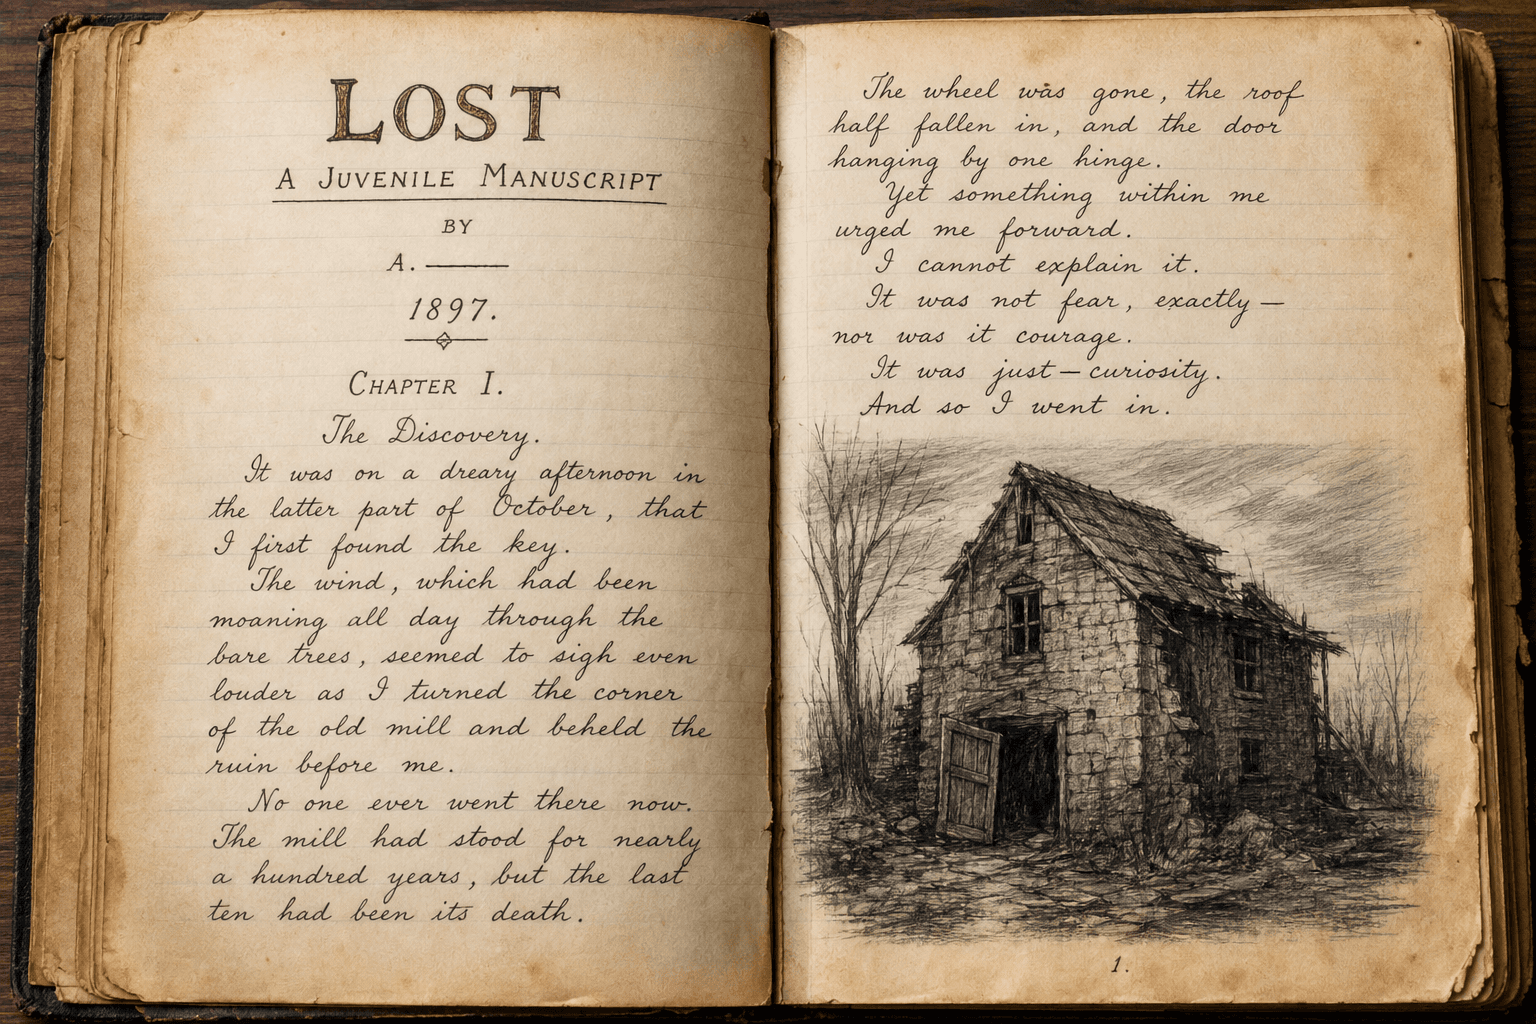 LOST
A JUVENILE MANUSCRIPT
BY
A. ———
1897.
CHAPTER I.
The Discovery.
It was on a dreary afternoon in
the latter part of October, that
I first found the key.
The wind, which had been
moaning all day through the
bare trees, seemed to sigh even
louder as I turned the corner
of the old mill and beheld the
ruin before me.
No one ever went there now.
The mill had stood for nearly
a hundred years, but the last
ten had been its death.
The wheel was gone, the roof
half fallen in, and the door
hanging by one hinge.
Yet something within me
urged me forward.
I cannot explain it.
It was not fear, exactly —
nor was it courage.
It was just — curiosity.
And so I went in.
1.